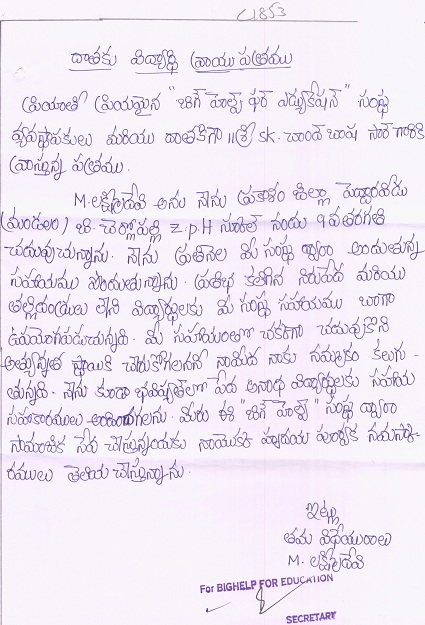 C1853
దాతకు విద్యార్థి వ్రాయు పత్రము
ప్రియాతి ప్రియమైన "బిగ్ హెల్ప్ ఫర్ ఎడ్యుకేషన్" సంస్థ
వ్యవస్థాపకులు మరియు దాతలైన ॥శ్రీ SK. చాంద్ బాషా సార్ గారికి
వ్రాస్తున్న పత్రము.
M. లక్ష్మీదేవి అను నేను ప్రకాశం జిల్లా పెద్దారవీడు
(మండలం) బి. చెర్లోపల్లి Z.P.H స్కూల్ నందు 9వ తరగతి
చదువుచున్నాను. నేను ప్రతినెల మీ సంస్థ ద్వారా అందుతున్న
సహాయము పొందుతున్నాను. ప్రతిభ కలిగిన నిరుపేద మరియు
తల్లిదండ్రులు లేని విద్యార్థులకు మీ సంస్థ సహాయము బాగా
ఉపయోగపడుచున్నది. మీ సహాయంతో చక్కగా చదువుకొని
అత్యున్నత స్థాయికి చేరుకోగలనని నామీద నాకు నమ్మకం కలుగు-
తున్నది. నేను కూడా భవిష్యత్‌లో పేద అనాథ విద్యార్థులకు సహాయ
సహకారములు అందించగలను. మీరు ఈ "బిగ్ హెల్ప్" సంస్థ ద్వారా
సామాజిక సేవ చేస్తున్నందుకు నాయొక్క హృదయ పూర్వక నమస్కా-
రములు తెలియ చేస్తున్నాను.
ఇట్లు
తమ విధేయురాలు
M. లక్ష్మీదేవి
For BIGHELP FOR EDUCATION
SECRETARY